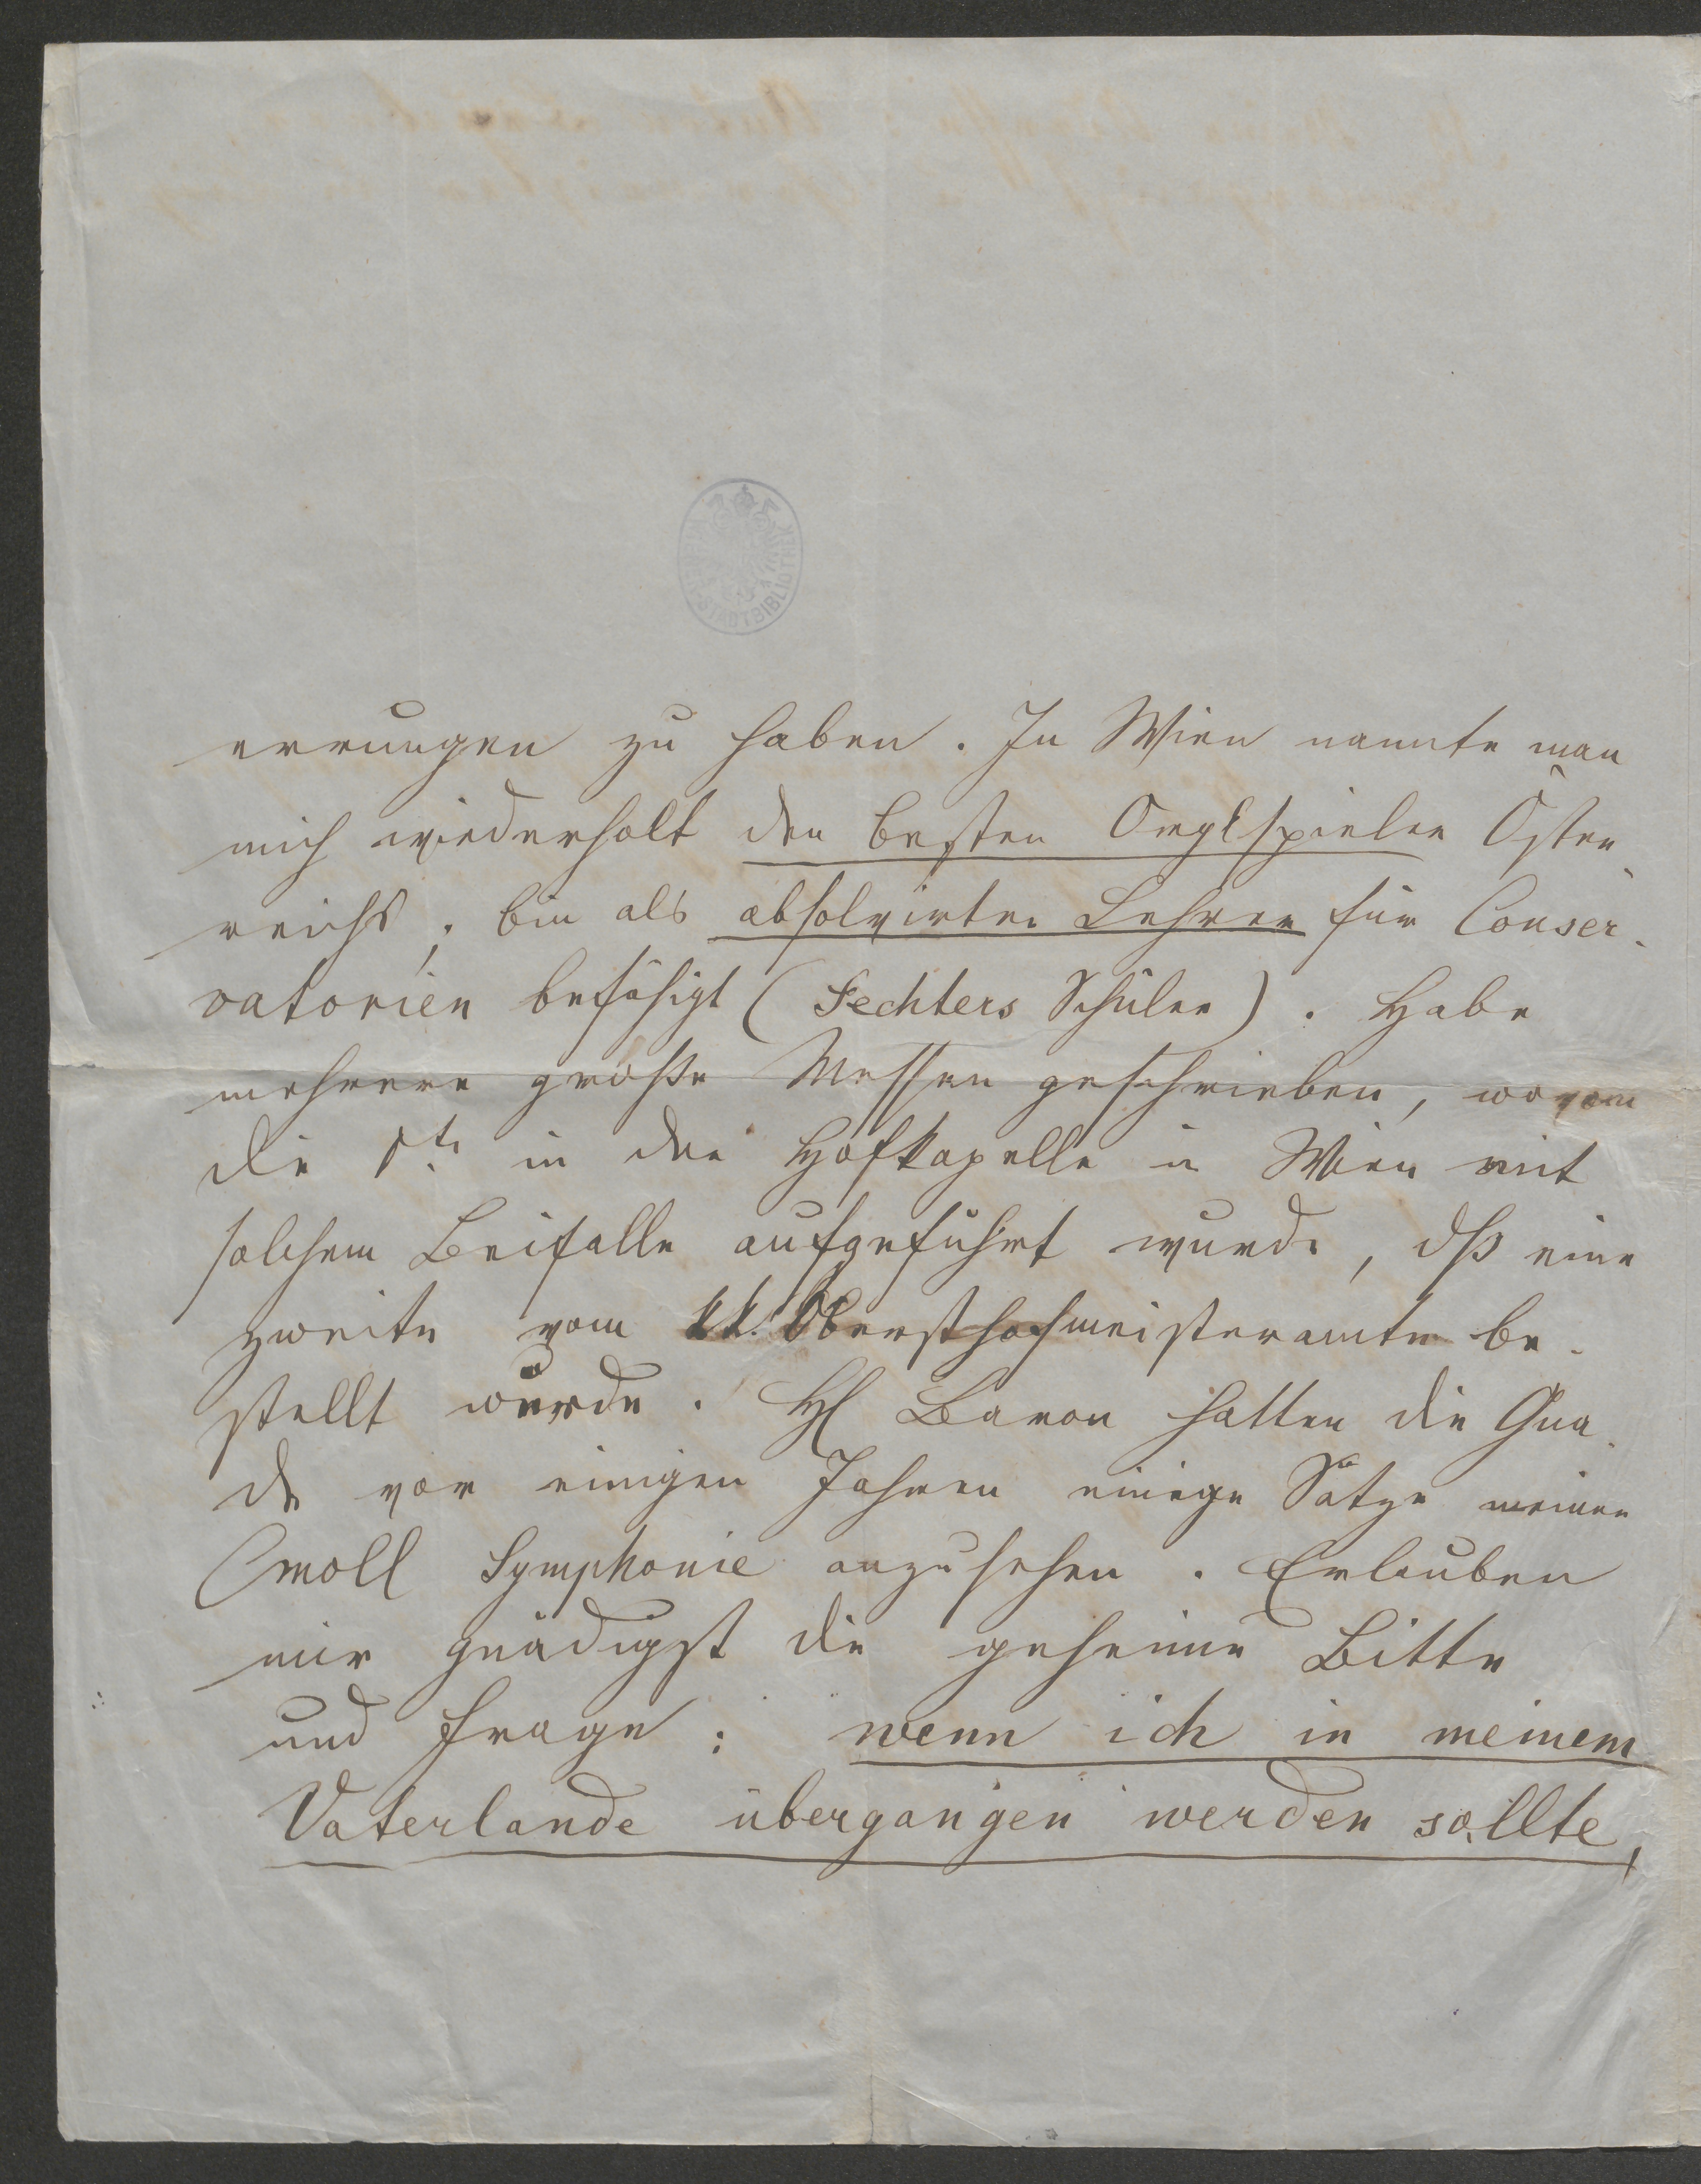 errungen zu haben. In Wien nannte man
mich wiederholt den besten Orgelspieler Öster¬
reichs; bin als absolvirter Lehrer für Conser¬
vatorien befähigt (Sechters Schüler). Habe
mehrere große Messen geschrieben, wovon
die 1te in der Hofkapelle in Wien mit
solchem Beifalle aufgeführt wurde, dß eine
zweite vom kk. Obersthofmeisteramte be¬
stellt wurde. H Baron hatten die Gna¬
de vor einigen Jahren einige Sätze meiner
Cmoll Symphonie anzusehen. Erlauben
mir gnädigst die geheime Bitte
und Frage: wenn ich in meinem
Vaterlande übergangen werden sollte,